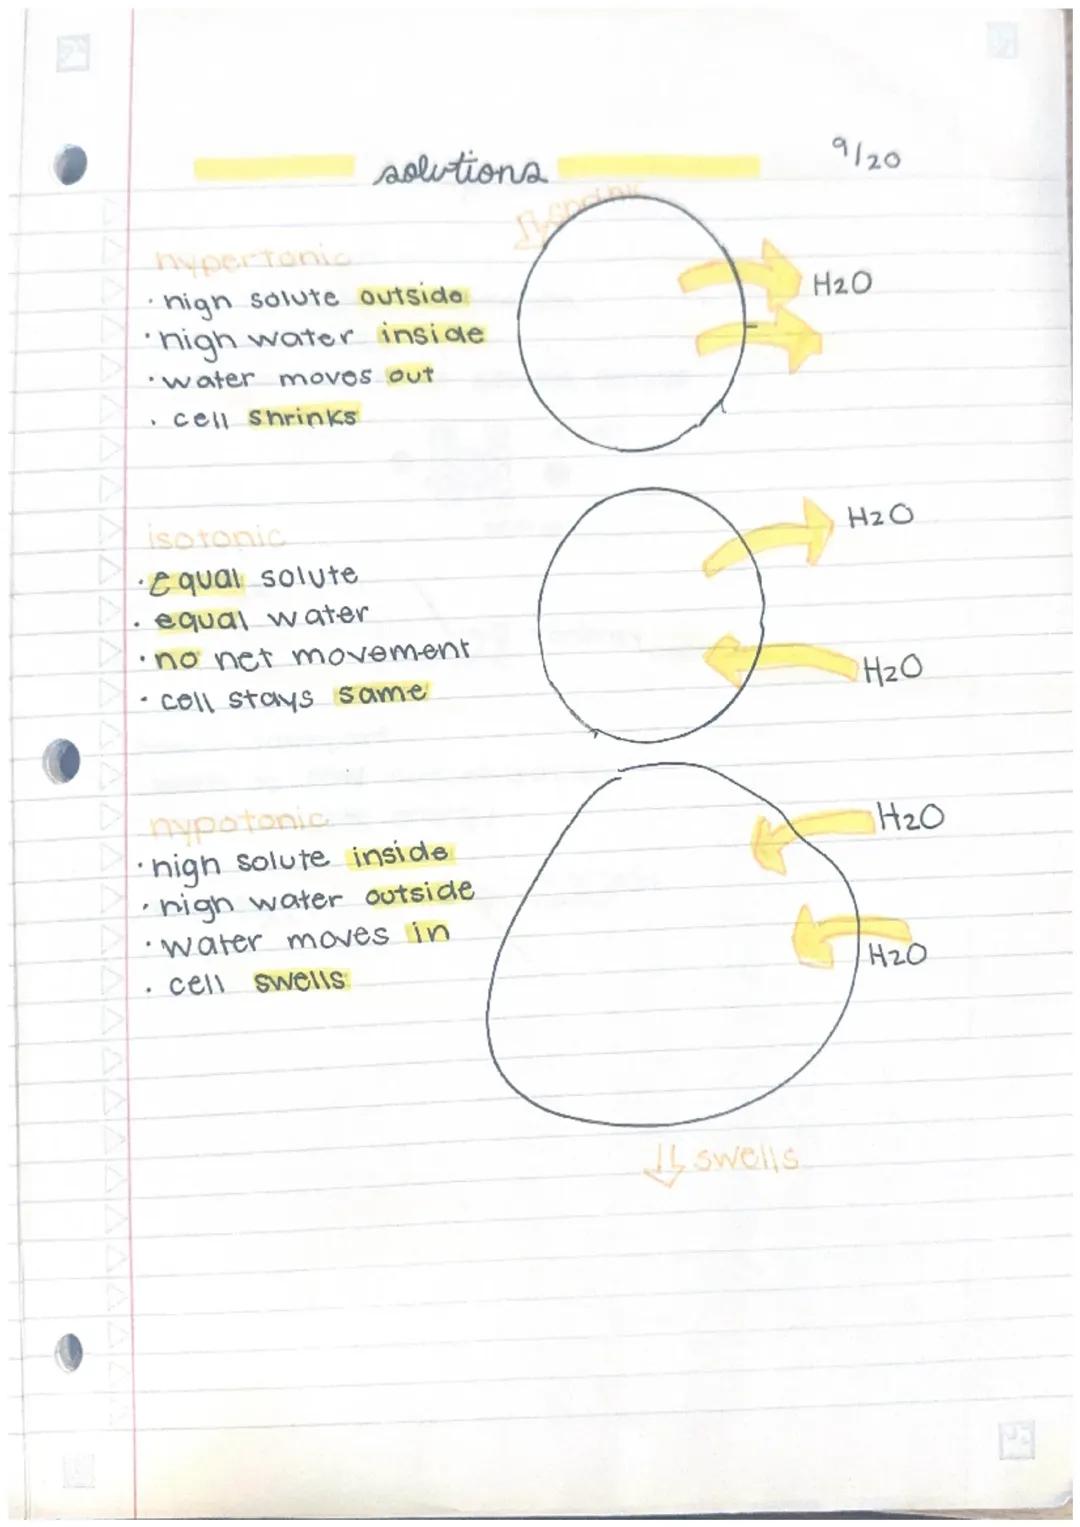 solutions
9/20
hypertonic
· high solute outside
· high water inside
· water moves out
· cell shrinks
H2O
isotonic
· equal solute
· equal water
· no net movement
· cell stays same
H2O
H2O
hypotonic
· high solute inside
· high water outside
· water moves in
· cell swells
H2O
H2O
swells